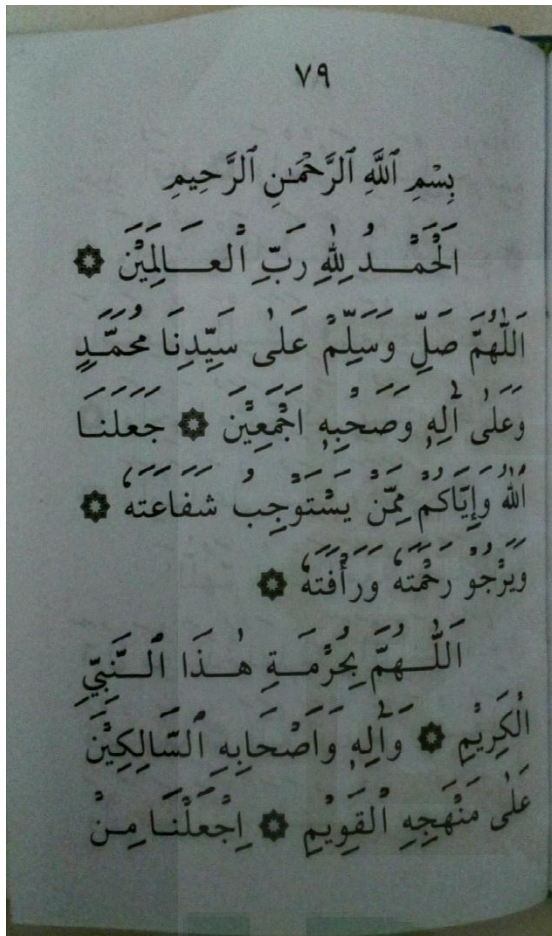 ٧٩
بِسْمِ ٱللَّهِ ٱلرَّحْمَٰنِ ٱلرَّحِيمِ
اَلْحَمْـــدُ لِلّٰهِ رَبِّ الْعَـــالَمِيْنَ ۞
اَللّٰهُمَّ صَلِّ وَسَلِّمْ عَلٰى سَيِّدِنَا مُحَمَّدٍ
وَعَلٰى اٰلِهٖ وَصَحْبِهٖ اَجْمَعِيْنَ ۞ جَعَلَنَـا
اللهُ وَإِيَّاكُمْ مِمَّنْ يَسْتَوْجِبُ شَفَاعَتَهُ ۞
وَيَرْجُوْ رَحْمَتَهُ وَرَأْفَتَهُ ۞
اَللّٰـــهُمَّ بِحُرْمَـــةِ هٰـــذَا ٱلـــنَّبِيِّ
الْكَرِيْمِ ۞ وَاٰلِهٖ وَاَصْحَابِهِ ٱلسَّالِكِيْنَ
عَلٰى مَنْهَجِهِ الْقَوِيْمِ ۞ اِجْعَلْنَـا مِـنْ